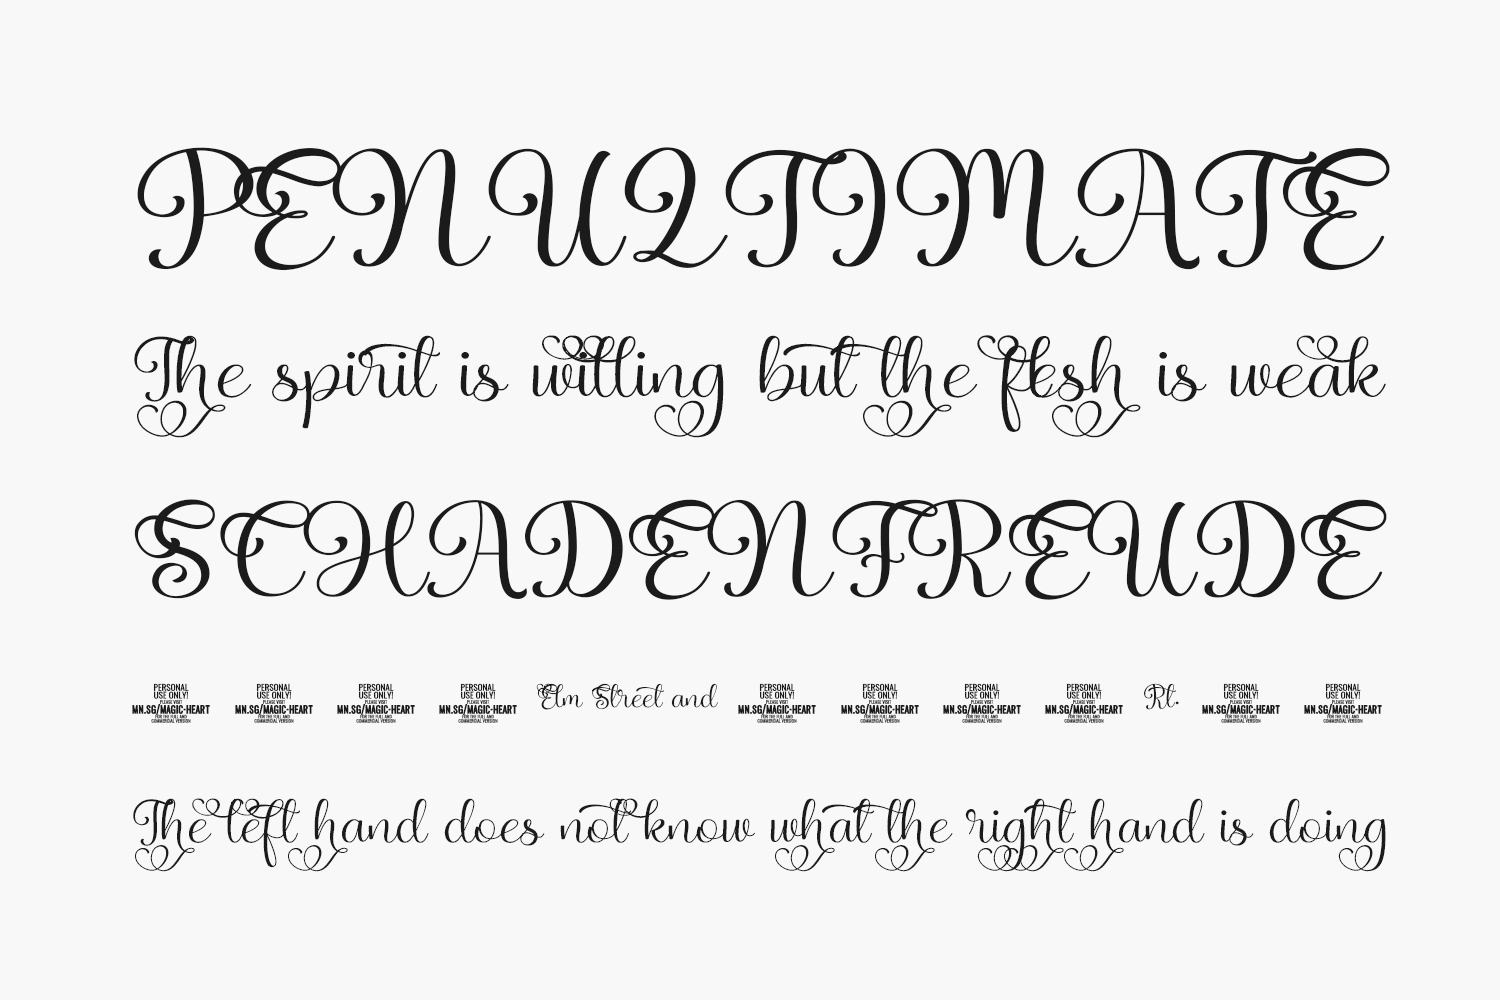 PENULTIMATE
The spirit is willing but the flesh is weak
SCHADENFREUDE
PERSONAL USE ONLY! PLEASE VISIT MN.SG/MAGIC-HEART FOR THE FULL AND COMMERCIAL VERSION PERSONAL USE ONLY! PLEASE VISIT MN.SG/MAGIC-HEART FOR THE FULL AND COMMERCIAL VERSION PERSONAL USE ONLY! PLEASE VISIT MN.SG/MAGIC-HEART FOR THE FULL AND COMMERCIAL VERSION PERSONAL USE ONLY! PLEASE VISIT MN.SG/MAGIC-HEART FOR THE FULL AND COMMERCIAL VERSION Elm Street and PERSONAL USE ONLY! PLEASE VISIT MN.SG/MAGIC-HEART FOR THE FULL AND COMMERCIAL VERSION PERSONAL USE ONLY! PLEASE VISIT MN.SG/MAGIC-HEART FOR THE FULL AND COMMERCIAL VERSION PERSONAL USE ONLY! PLEASE VISIT MN.SG/MAGIC-HEART FOR THE FULL AND COMMERCIAL VERSION PERSONAL USE ONLY! PLEASE VISIT MN.SG/MAGIC-HEART FOR THE FULL AND COMMERCIAL VERSION Rt. PERSONAL USE ONLY! PLEASE VISIT MN.SG/MAGIC-HEART FOR THE FULL AND COMMERCIAL VERSION PERSONAL USE ONLY! PLEASE VISIT MN.SG/MAGIC-HEART FOR THE FULL AND COMMERCIAL VERSION
The left hand does not know what the right hand is doing